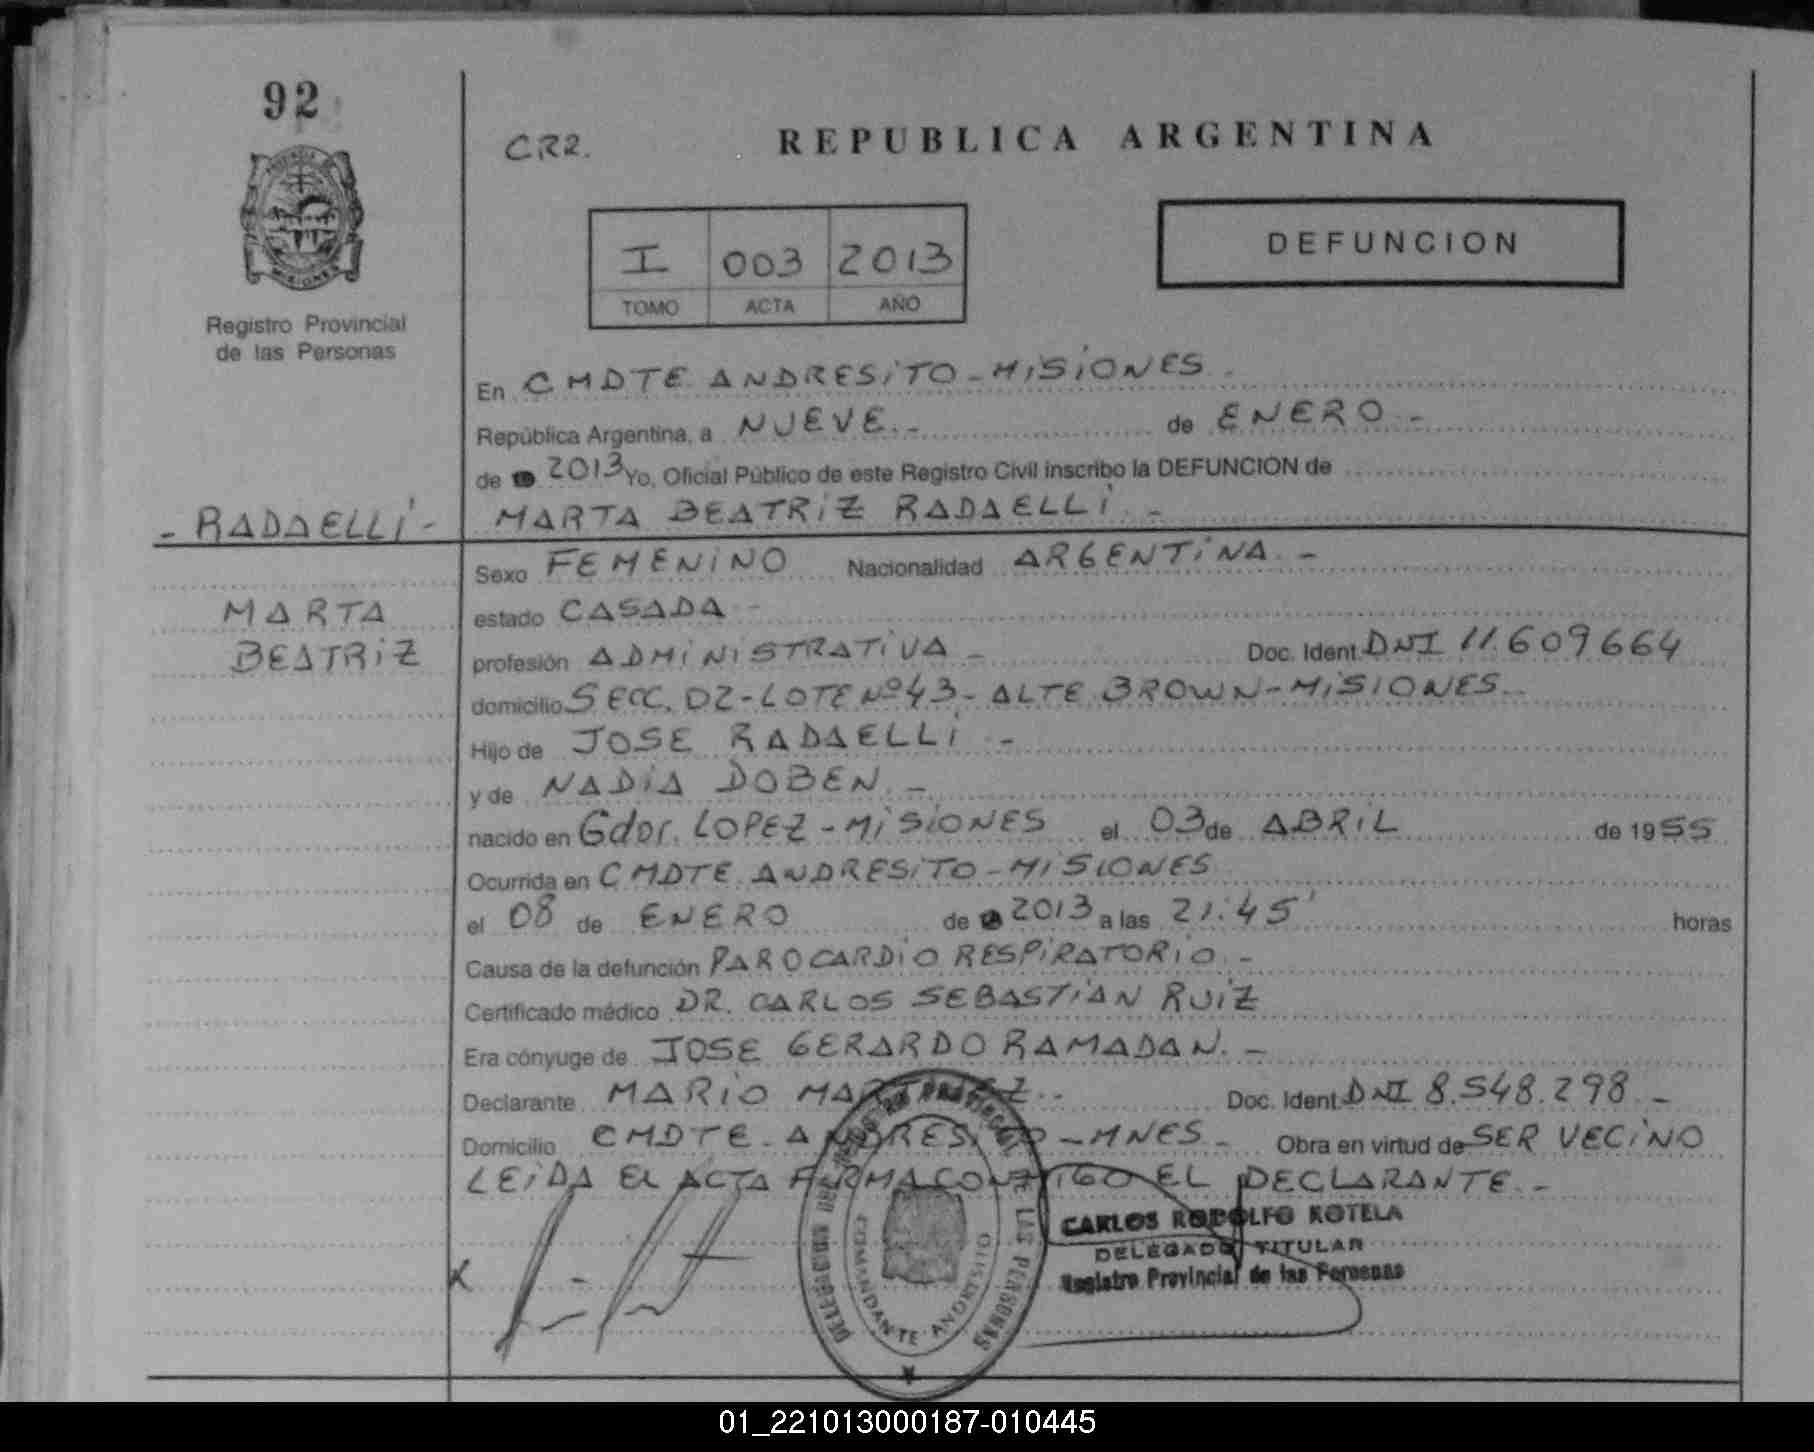 92
CR2.
REPUBLICA ARGENTINA
I 003 2013
TOMO ACTA AÑO
DEFUNCION
MISIONES
Registro Provincial
de las Personas
En CMDTE ANDRESiTO - MiSiONES
República Argentina, a NUEVE.- de ENERO.-
de 2013 Yo, Oficial Público de este Registro Civil inscribo la DEFUNCION de
- RADAELLi -
MARTA BEATRiZ RADAELLi.-
MARTA
BEATRiZ
Sexo FEMENiNO Nacionalidad ARGENTiNA.-
estado CASADA-
profesión ADMiNiSTRATiVA - Doc. Ident. DNI 11.609664
domicilio SECC. DZ-LOTE Nº43- ALTE BROWN-MiSIONES-
Hijo de JOSE RADAELLi.-
y de NADiA DOBEN.-
nacido en Gdor. LOPEZ - MiSiONES el 03 de ABRiL de 1955
Ocurrida en CMDTE ANDRESiTO - MiSIONES
el 08 de ENERO de 2013 a las 21:45' horas
Causa de la defunción PARO CARDiO RESPiRATORiO.-
Certificado médico DR. CARLOS SEBASTiAN RUiZ
Era cónyuge de JOSE GERARDO RAMADAN.-
Declarante MARiO MARTINEZ.- Doc. Ident. DNI 8.548.298.-
Domicilio CMDTE. ANDRESiTO - MNES- Obra en virtud de SER VECiNO
LEiDA EL ACTA FiRMA CONMiGO EL DECLARANTE.-
CARLOS RODOLFO KOTELA
DELEGADO TITULAR
Registro Provincial de las Personas
DE LAS PERSONAS
COMANDANTE ANDRESITO
X
01_221013000187-010445